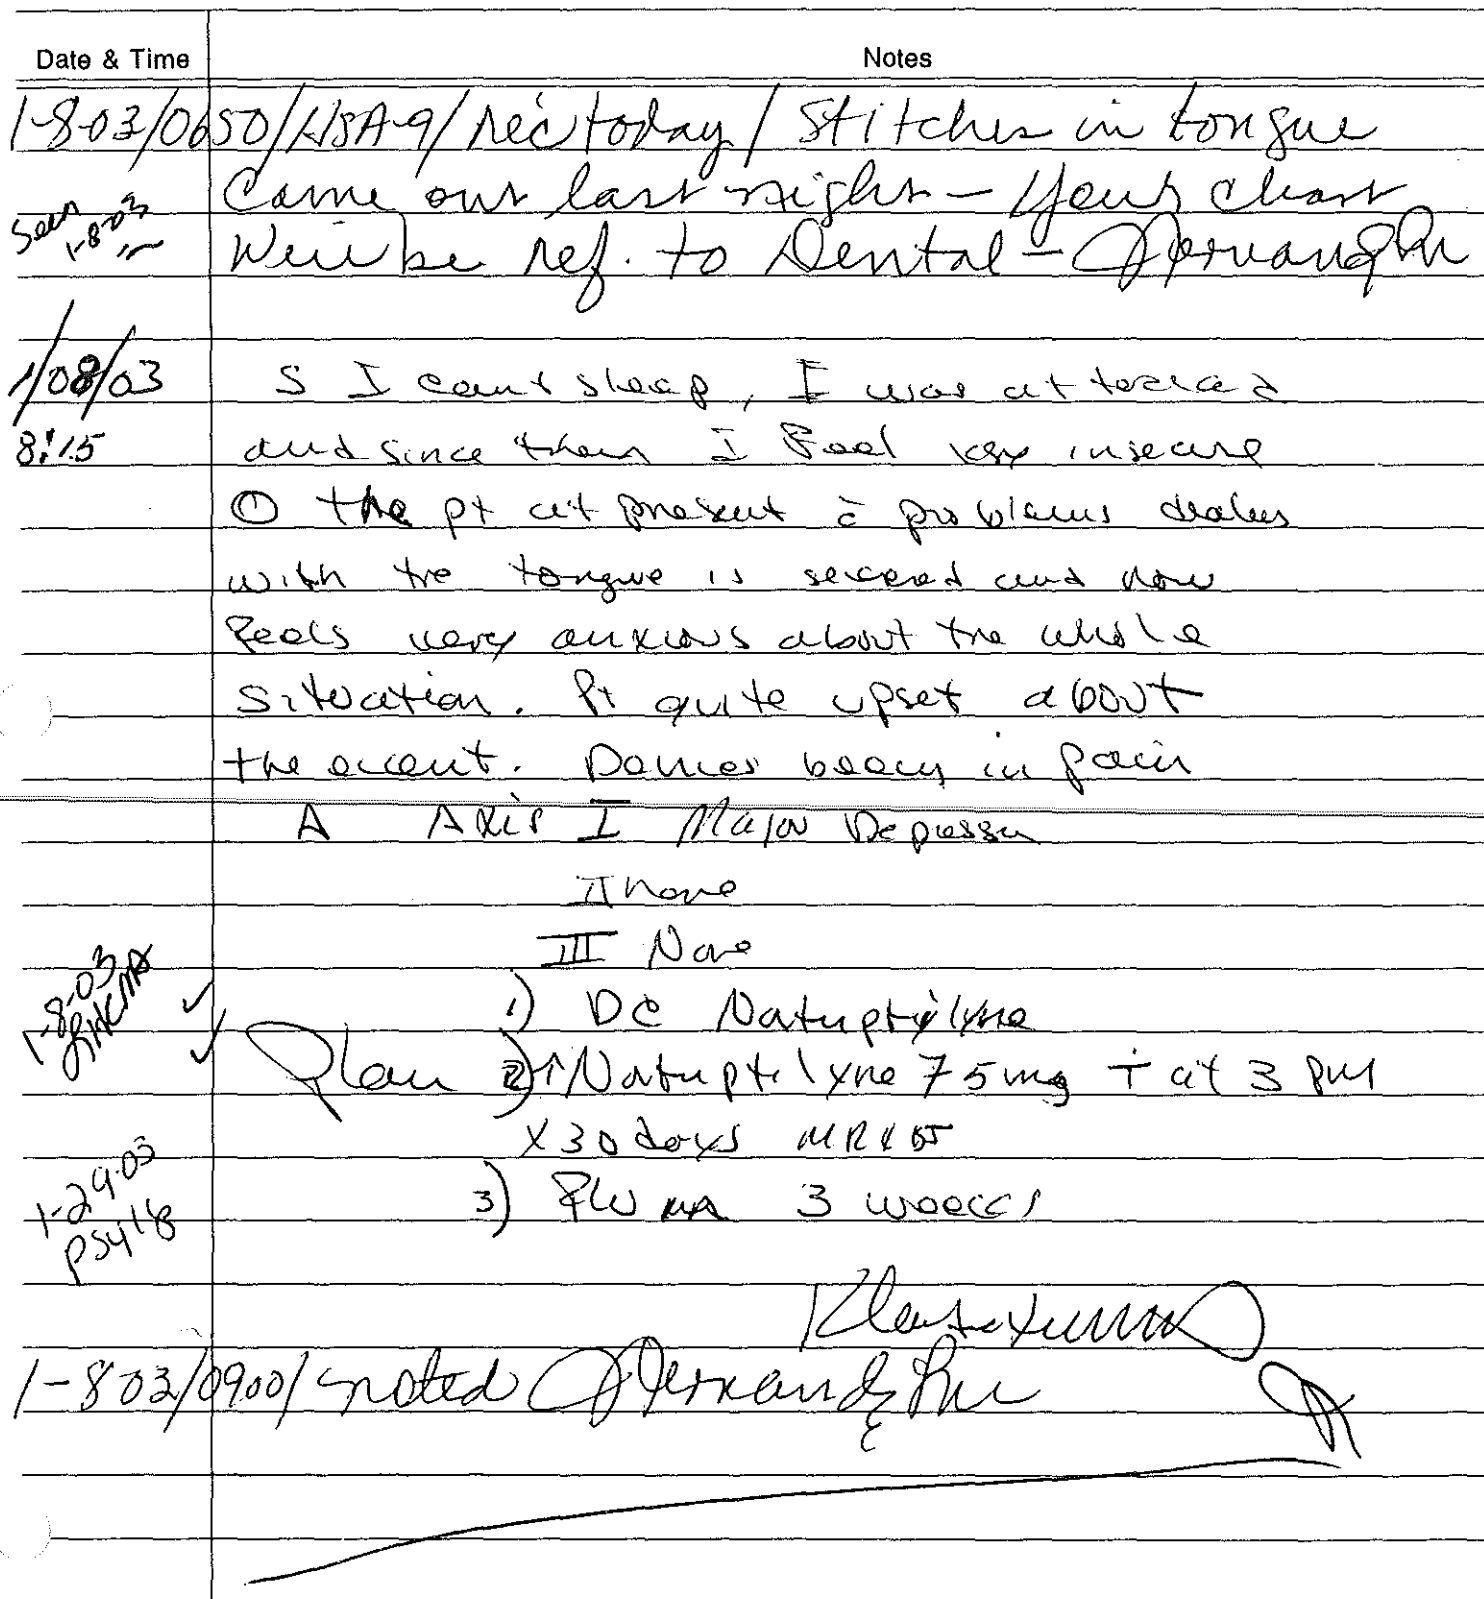 Date & Time Notes
1-8-03/0650/HSA-9/rec today/ Stitches in tongue
came out last night - Your chart
Seen 1-8-03
Will be ref. to Dental -
1/08/03 S I can't sleep, I was attacked
8:15 and since then I feel very insecure
O the pt at present c̄ problems dealing
with the tongue is severed and now
feels very anxious about the whole
situation. Pt quite upset about
the event. Denies being in pain
A Axis I Major Depression
II none
III None
1-8-03
1) DC
Plan 2) ↑ 75mg † at 3 pm
x 30 days
1-29-03
3) F/U 3 weeks
1-8-03/0900/ noted